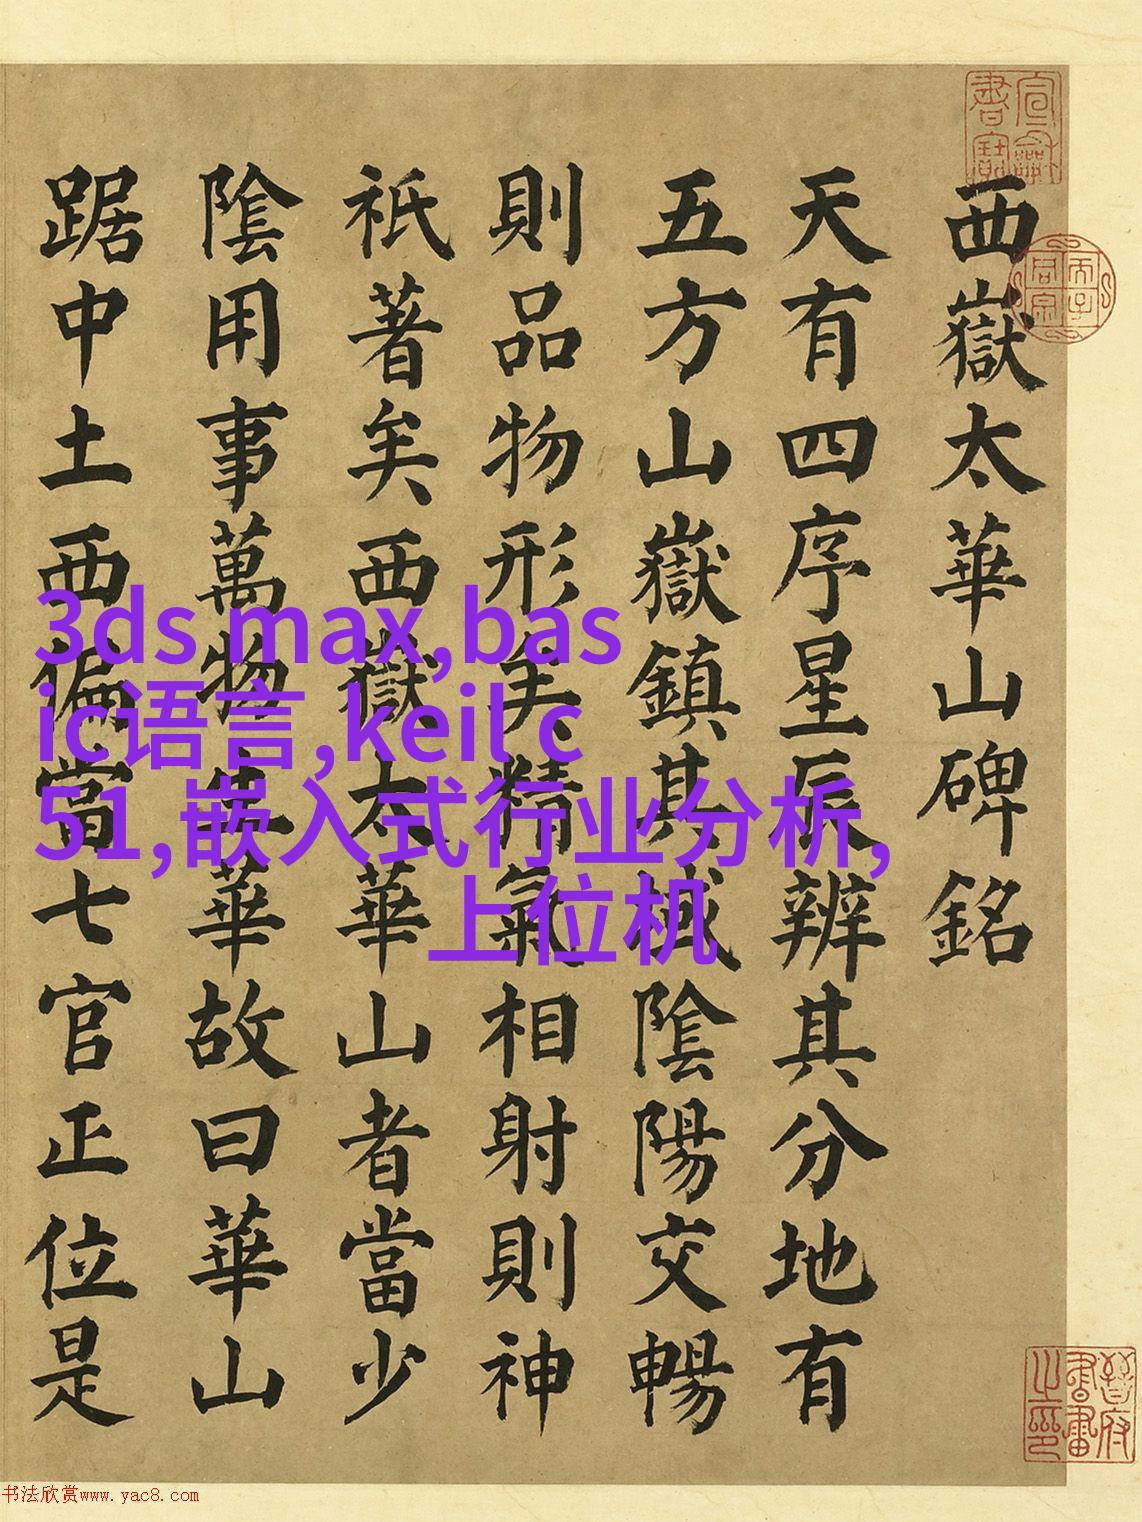 西嶽太華山碑銘
天有四序星辰辨其分地有
五方山嶽鎮其域陰陽交暢
則品物形矣精氣相射則神
祇著矣西嶽太華山者當少
陰用事萬物生華故曰華山
踞中土西偏當七官正位是
3ds max,bas
ic语言,keil c
51,嵌入式行业分析,
上位机
晉府書畫之印
书法欣赏www.yac8.com